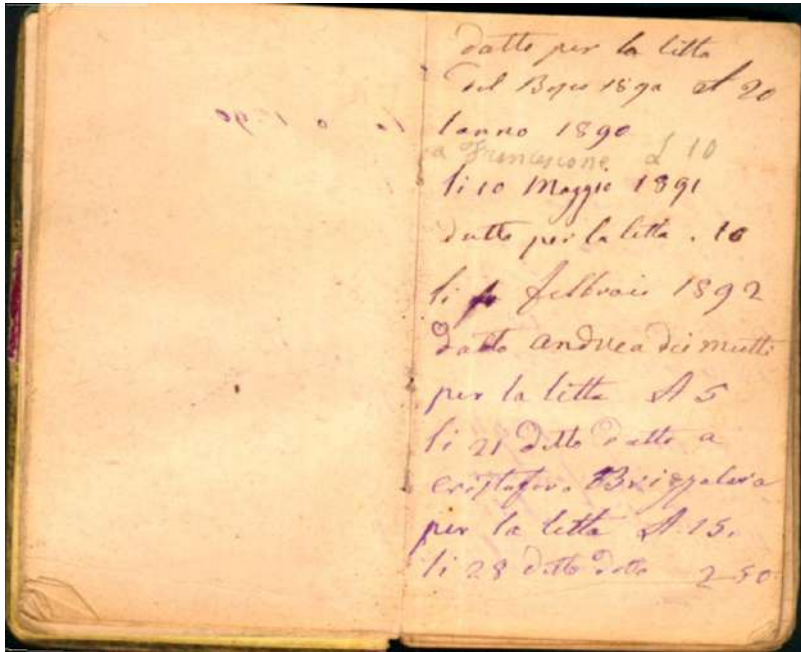 datto per la litta
del 1890 £ 20
lanno 1890
a Francescone £ 10
li 10 Maggio 1891
datto per la litta . 10
li febbraio 1892
datto andrea dei
per la litta £ 5
li 21 ditto datto a
cristofaro
per la litta £. 15.
li 28 ditto dotto 2-50